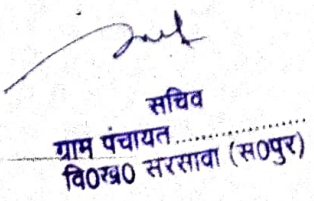 सचिव
ग्राम पंचायत....................
वि०ख० सरसावा (स०पुर)